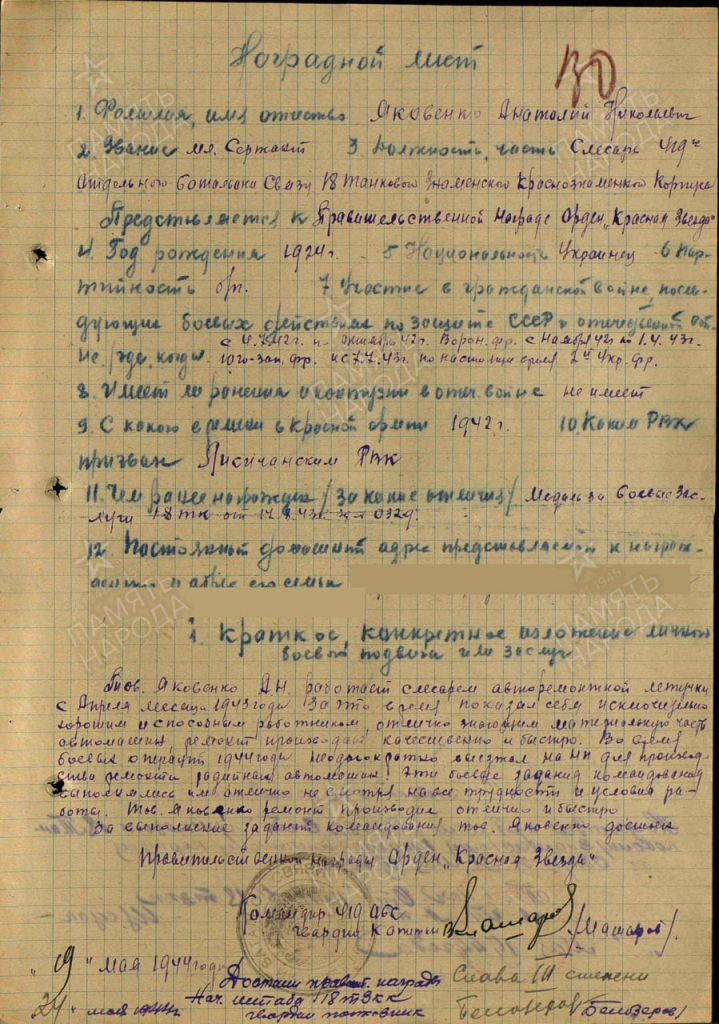 Наградной лист
ВО
1. Фамилия, имя, отчество Яковенко Анатолий Николаевич
2. Звание мл. Сержант 3. Должность, часть Слесарь 419го
отдельного батальона связи 18 танкового Знаменского Краснознаменного Корпуса
Представляется к Правительственной награде Орден „Красная Звезда"
4. Год рождения 1924г. 5 Национальность Украинец 6 пар-
тийность б/п. 7 Участие в гражданской войне, после-
дующие боевых действиям по защите СССР и отечествен от-
не /где, когда с 4.7.42г. по октябрь 42г. Ворон. фр. с Ноября 42г по 1.4.43г.
Юго-зап. фр. и с 7.7.43г. по настоящее время 2й Укр. фр.
8. Имеет ли ранения и контузии в отеч. войне не имеет
9. С какого времени в красной армии 1942г. 10. Каким РВК
призван Лисичанским РВК
11. Чем ранее награжден /за какие отличия/ Медаль за боевые зас-
луги 18 тк от 17.8.43г. 032/
12. Постоянный домашний адрес представляемого к награж-
дению и адрес его семьи
1. Краткое, конкретное изложение личного
боевого подвига или заслуг
Тов. Яковенко А.Н. работает слесарем авторемонтной летучки
с Апреля месяца 1943 года За это время показал себя исключительно
хорошим и способным работником, отлично знающим материальную часть
автомашин, ремонт производит качественно и быстро. Во время
боевых операций 1944 года неоднократно выезжал на НП для производ-
ства ремонта радийных автомашин. Эти боевые задания командования
выполнялись им отлично не смотря на все трудности и условия ра-
боты. Тов. Яковенко ремонт производил отлично и быстро
За выполнение заданий командования тов. Яковенко достоин
правительственной награды Орден „Красная Звезда"
Командир 419 обс
гвардии Капитан /Машаров/
„9" мая 1944 года
Достоин правит. награды Слава III степени
Нач. штаба 18 ТЗКК
24 мая 1944г гвардии полковник Белозеров /Белозеров/
ПАМЯТЬ
НАРОДА
ПАМЯТЬ
НАРОДА
ПАМЯТЬ
НАРОДА
ПАМЯТЬ
НАРОДА